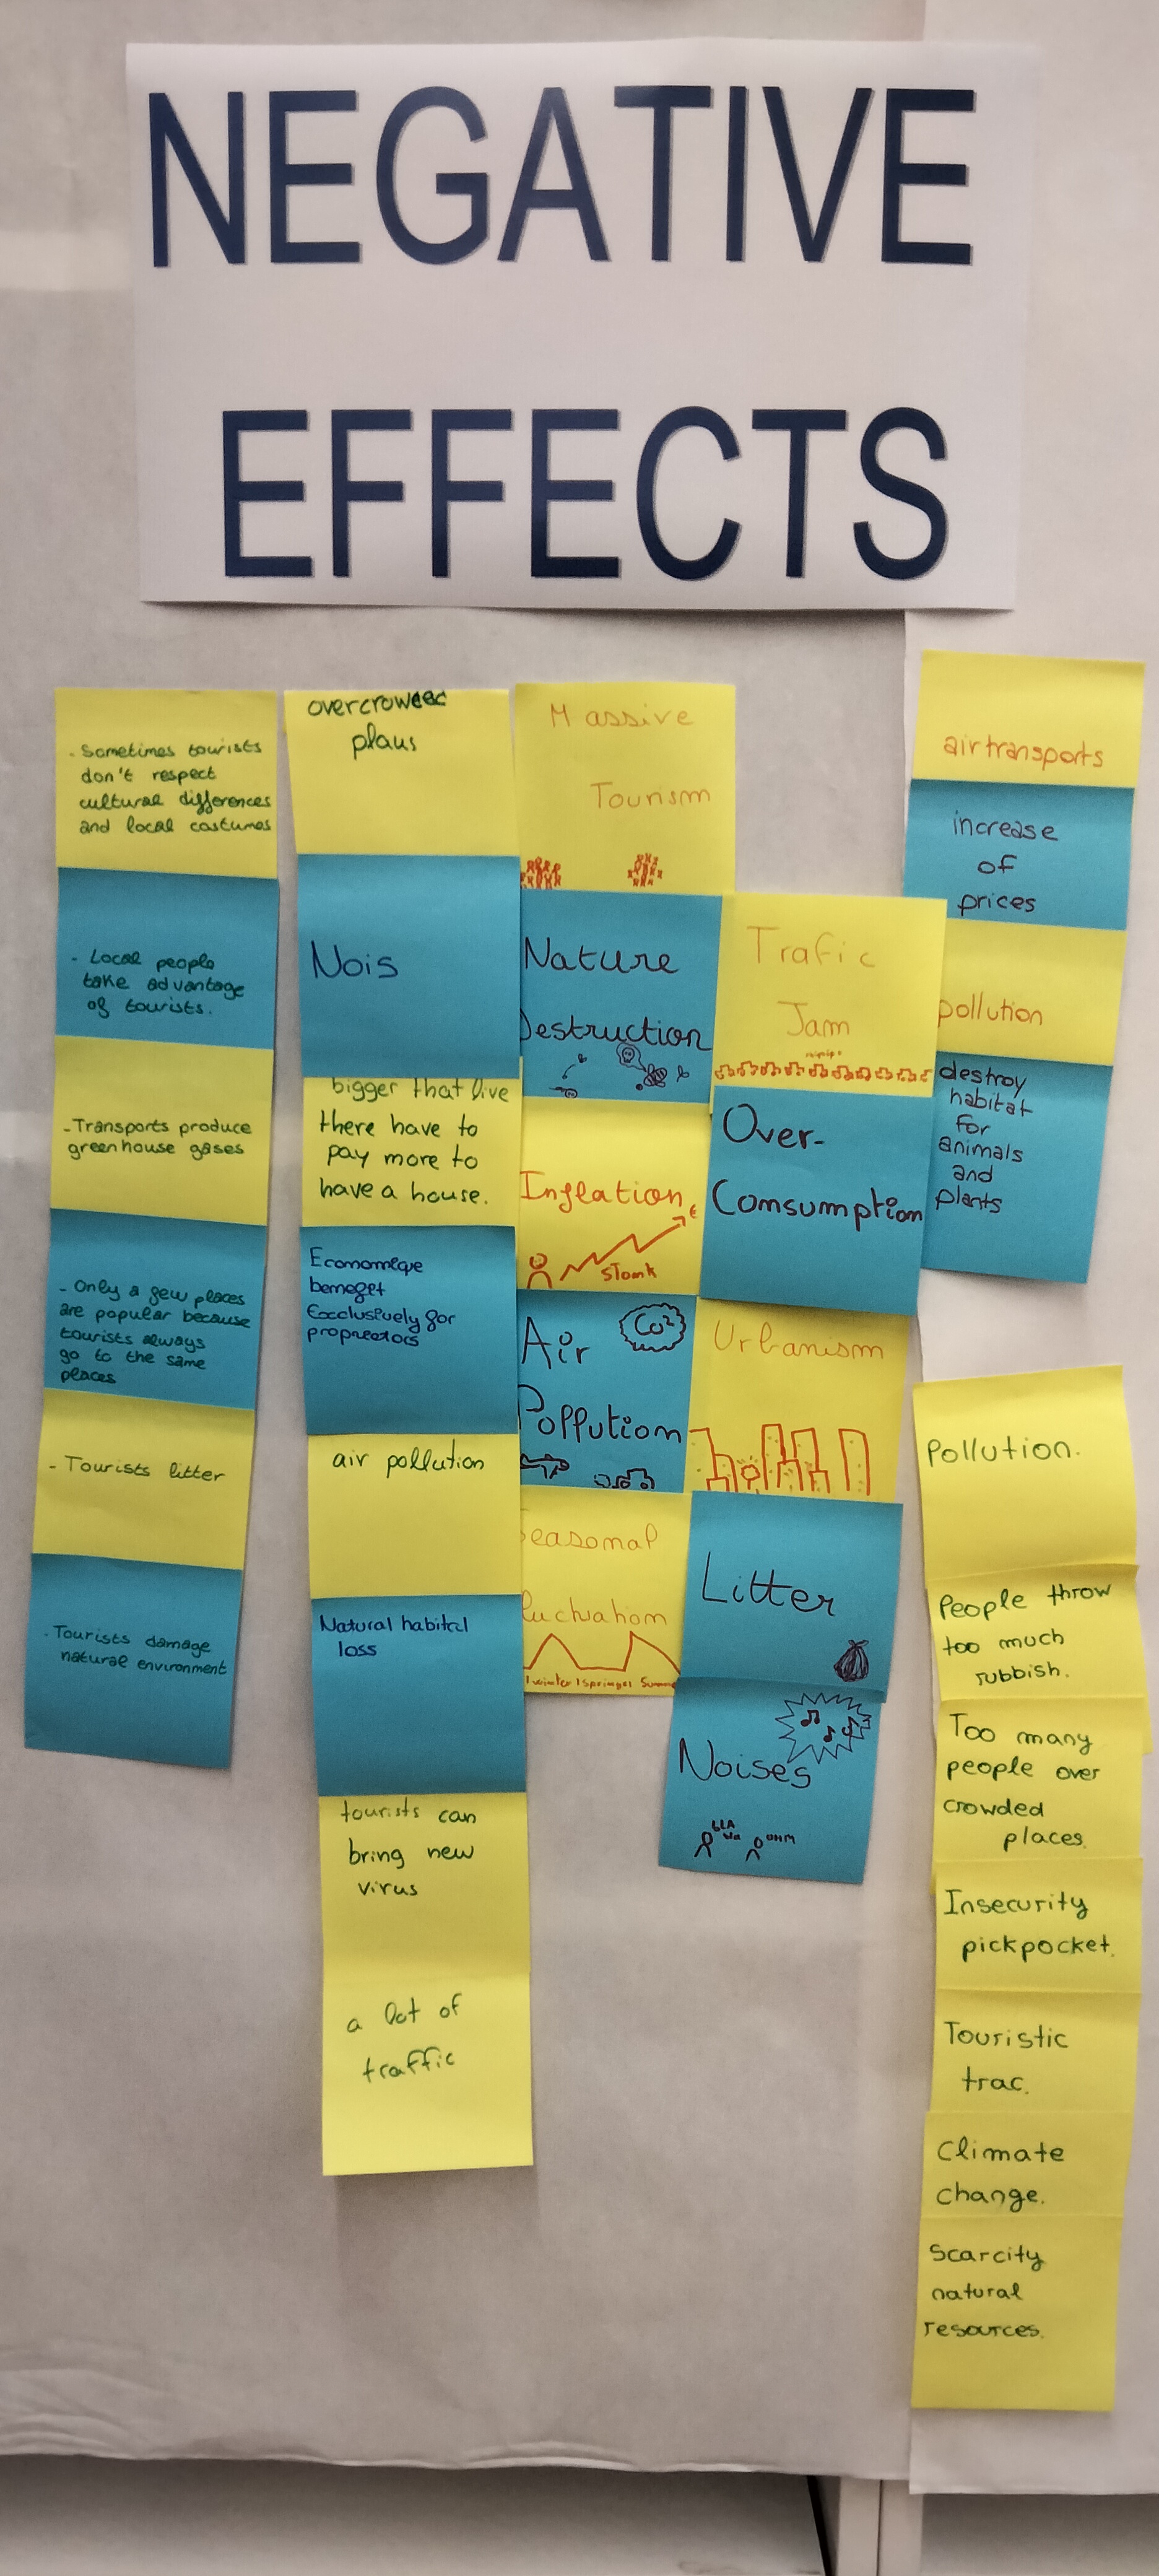 NEGATIVE
EFFECTS
- Sometimes tourists
don't respect
cultural differences
and local costumes
- Local people
take advantage
of tourists.
- Transports produce
greenhouse gases
- Only a few places
are popular because
tourists always
go to the same
places
- Tourists litter
- Tourists damage
natural environment
overcroweed
plaus
Nois
bigger that live
there have to
pay more to
have a house.
Economique
benefit
Exclusively for
proprietors
air pollution
Natural habital
loss
tourists can
bring new
virus
a lot of
traffic
Massive
Tourism
Nature
Destruction
Inflation
€
stonk
Air
CO²
Pollution
Seasonal
fluctuation
winter Spring Summ
Trafic
Jam
Over-
Consumption
Urbanism
Litter
Noises
BLA
bla
OHM
air transports
increase
of
prices
pollution
destroy
habitat
for
animals
and
plants
Pollution.
People throw
too much
rubbish.
Too many
people over
crowded
places.
Insecurity
pickpocket.
Touristic
trac.
Climate
change.
Scarcity
natural
resources.